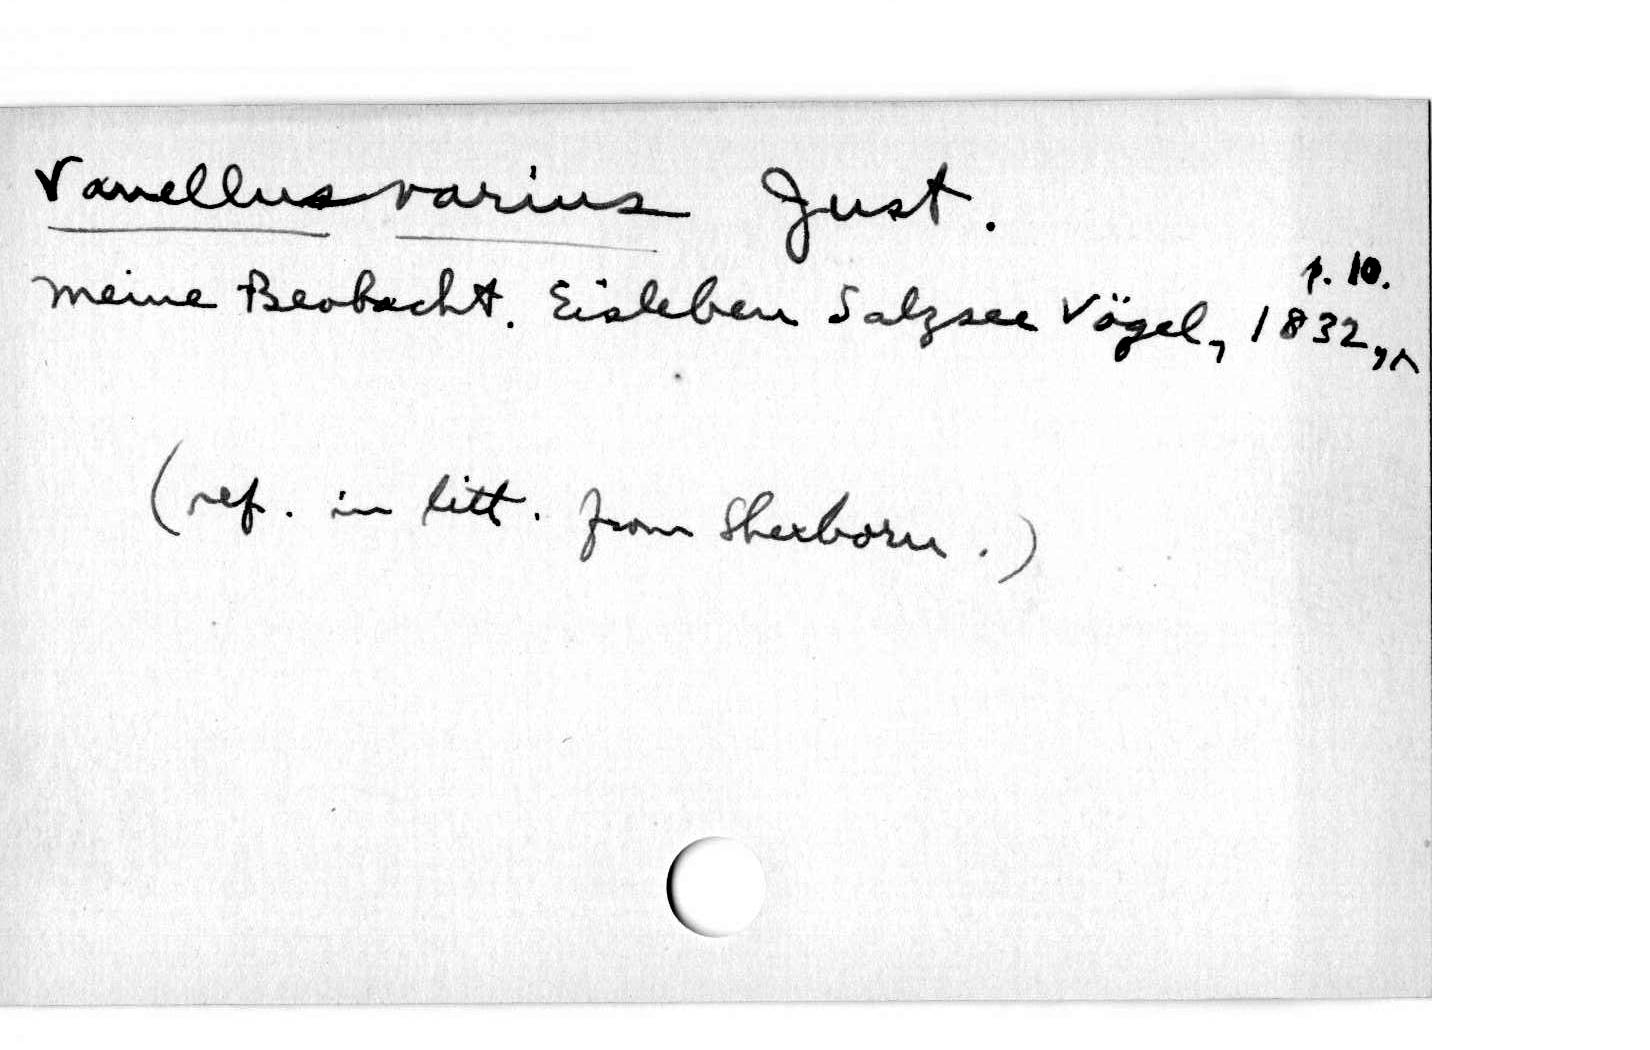 Vanellus varius Just.
Meine Beobacht. Eisleben Salzsee Vögel, 1832, p. 10.
(ref. in litt. from Sherborn.)